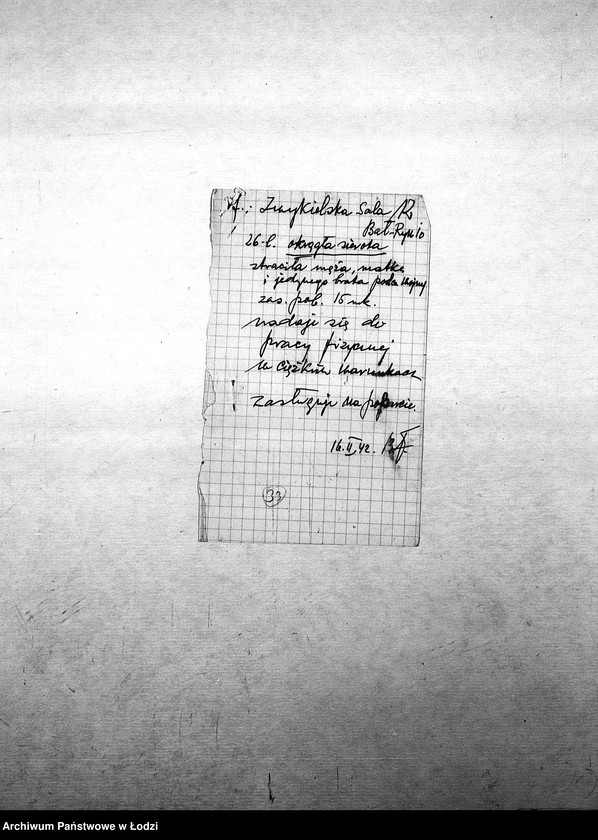 Sala
Bał-Rynio
26-l. okrągła sierota
straciła męża, matkę
i jedynego brata podcz. wojny
zas. pob. 15 mk.
nadaje się do
pracy fizycznej
w ciężkich warunkach
zasługuje na poparcie.
16.II.42.
33
Archiwum Państwowe w Łodzi